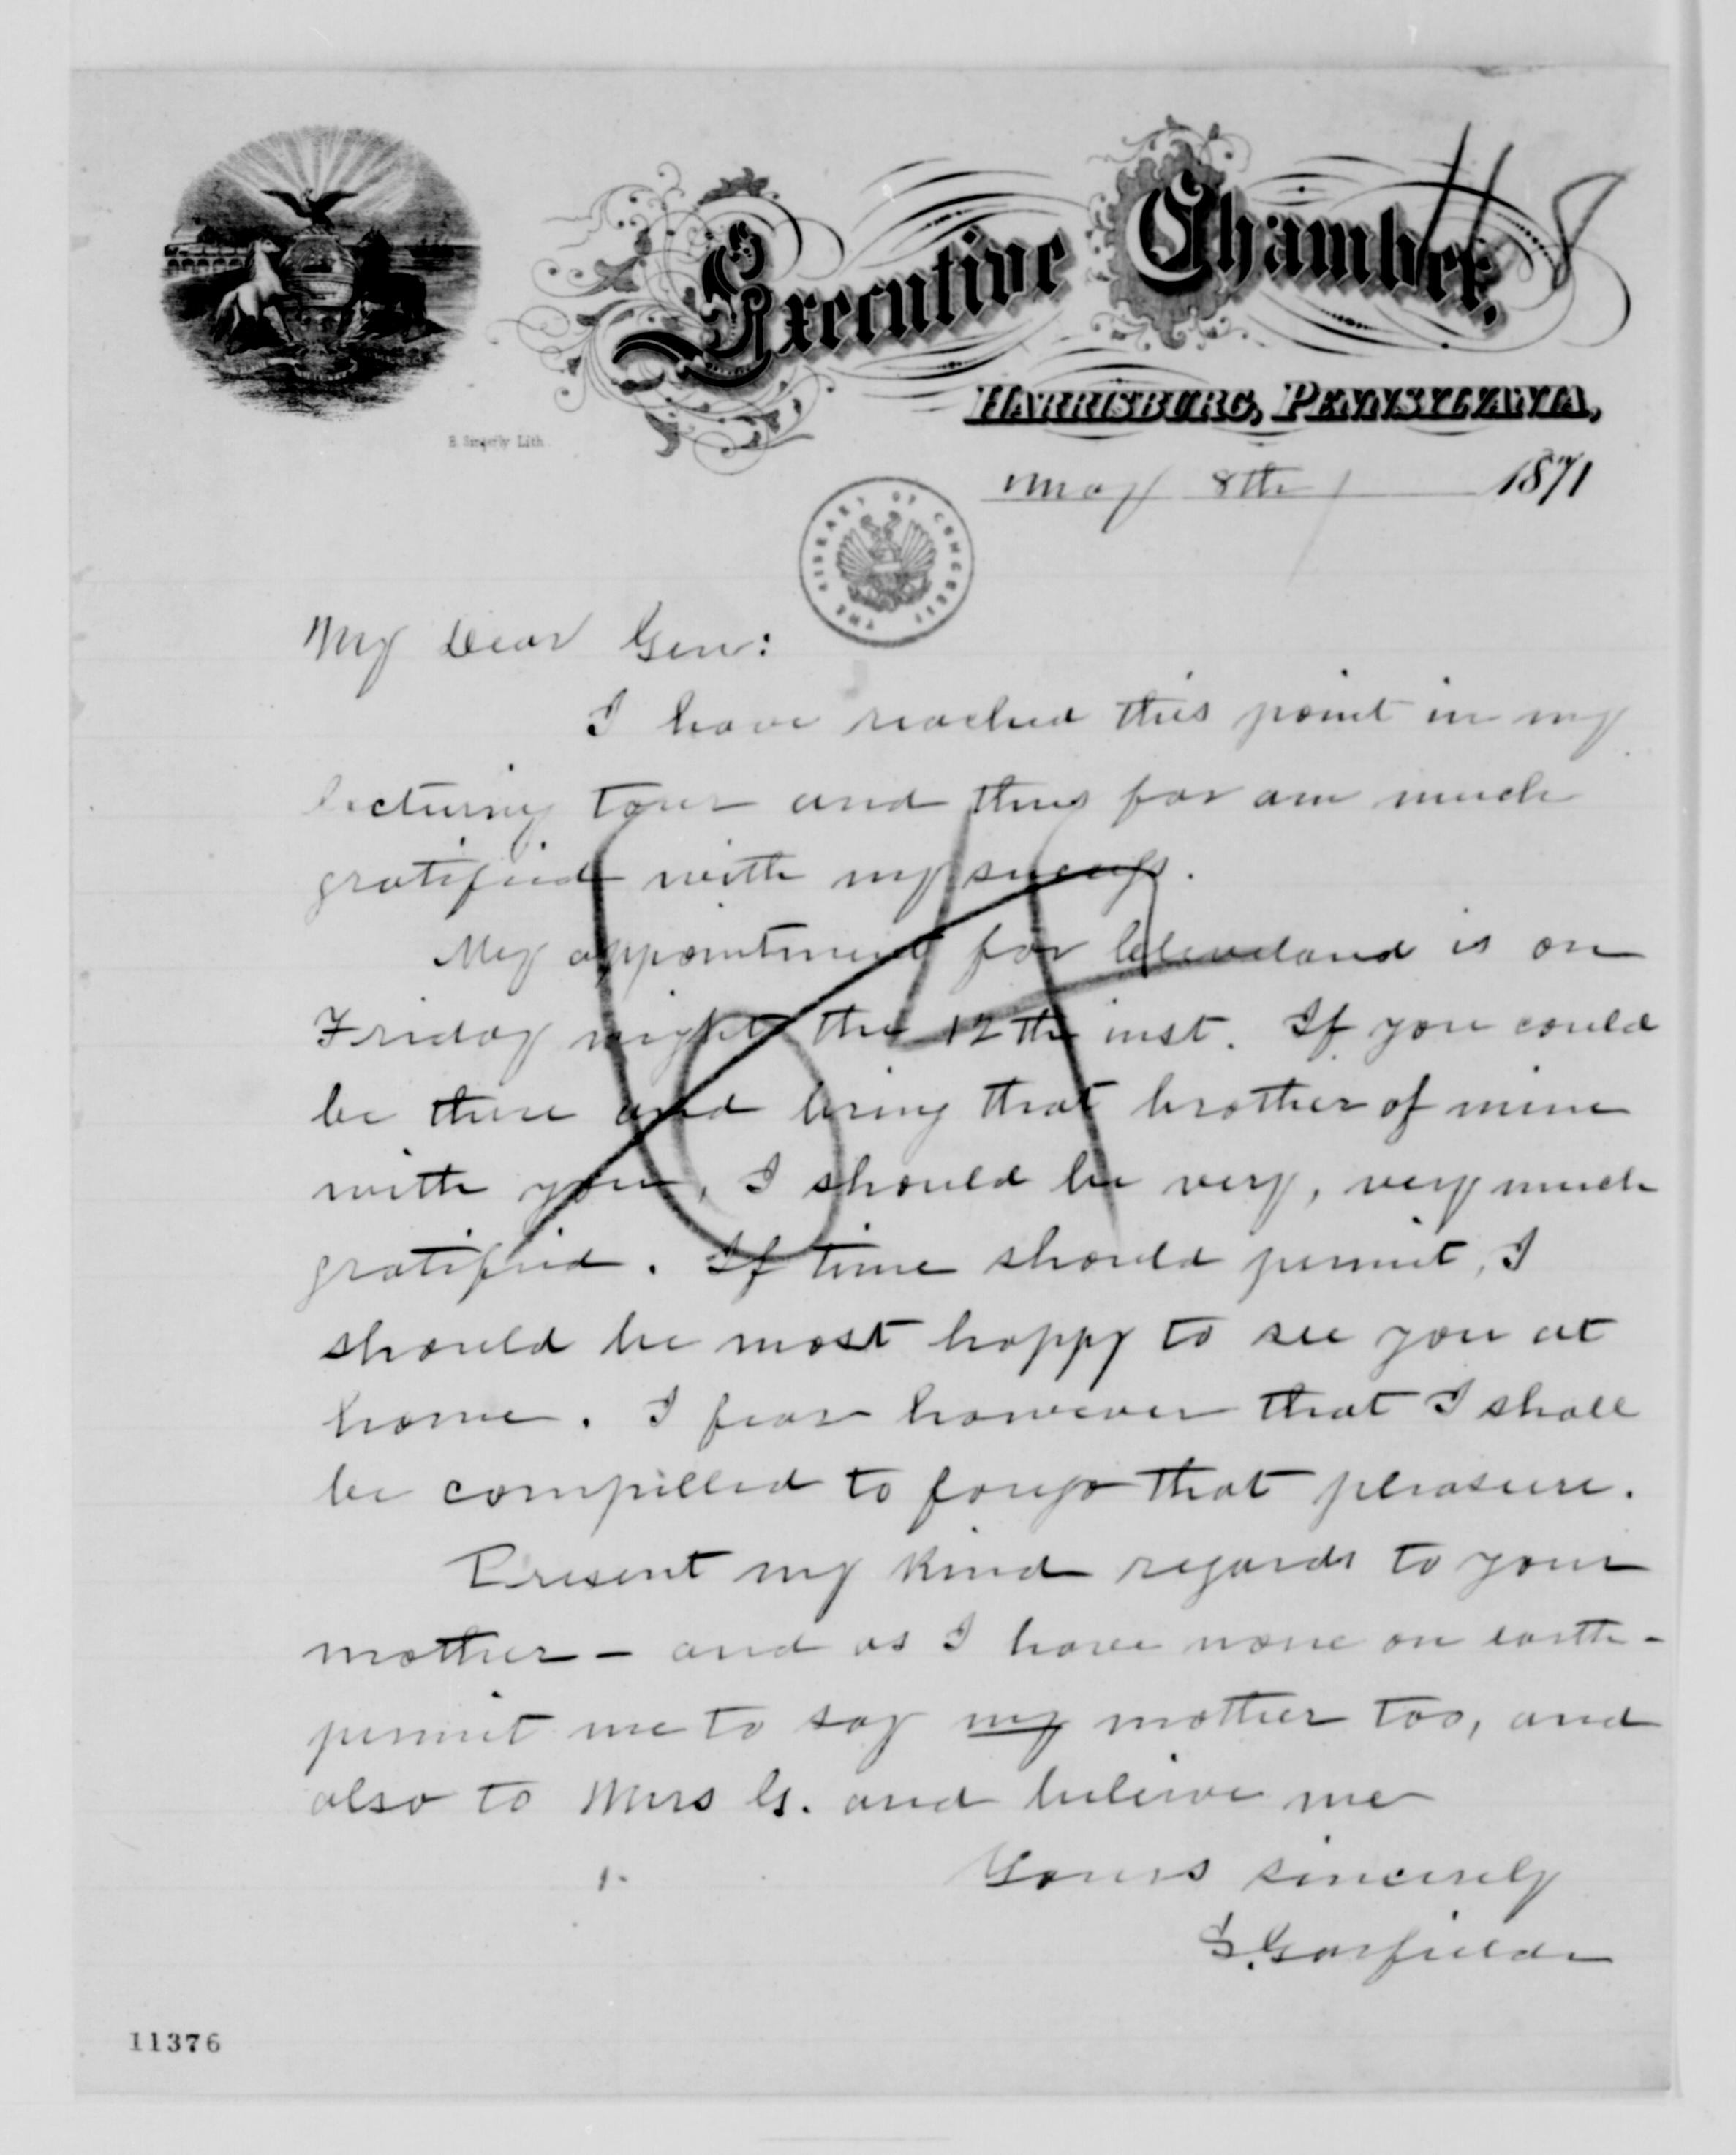 118
Executive Chamber,
HARRISBURG, PENNSYLVANIA,
B. Singerly Lith.
May 8th 1871
THE LIBRARY OF CONGRESS
My Dear Gen:
I have reached this point in my
lecturing tour and thus far am much
gratified with my success.
My appointment for Cleveland is on
Friday night the 12th inst. If you could
be there and bring that brother of mine
with you, I should be very, very much
gratified. If time should permit, I
should be most happy to see you at
home. I fear however that I shall
be compelled to forego that pleasure.
Present my kind regards to your
mother - and as I have none on earth -
permit me to say my mother too, and
also to Mrs G. and believe me
Yours sincerely
S. Garfielde
11376